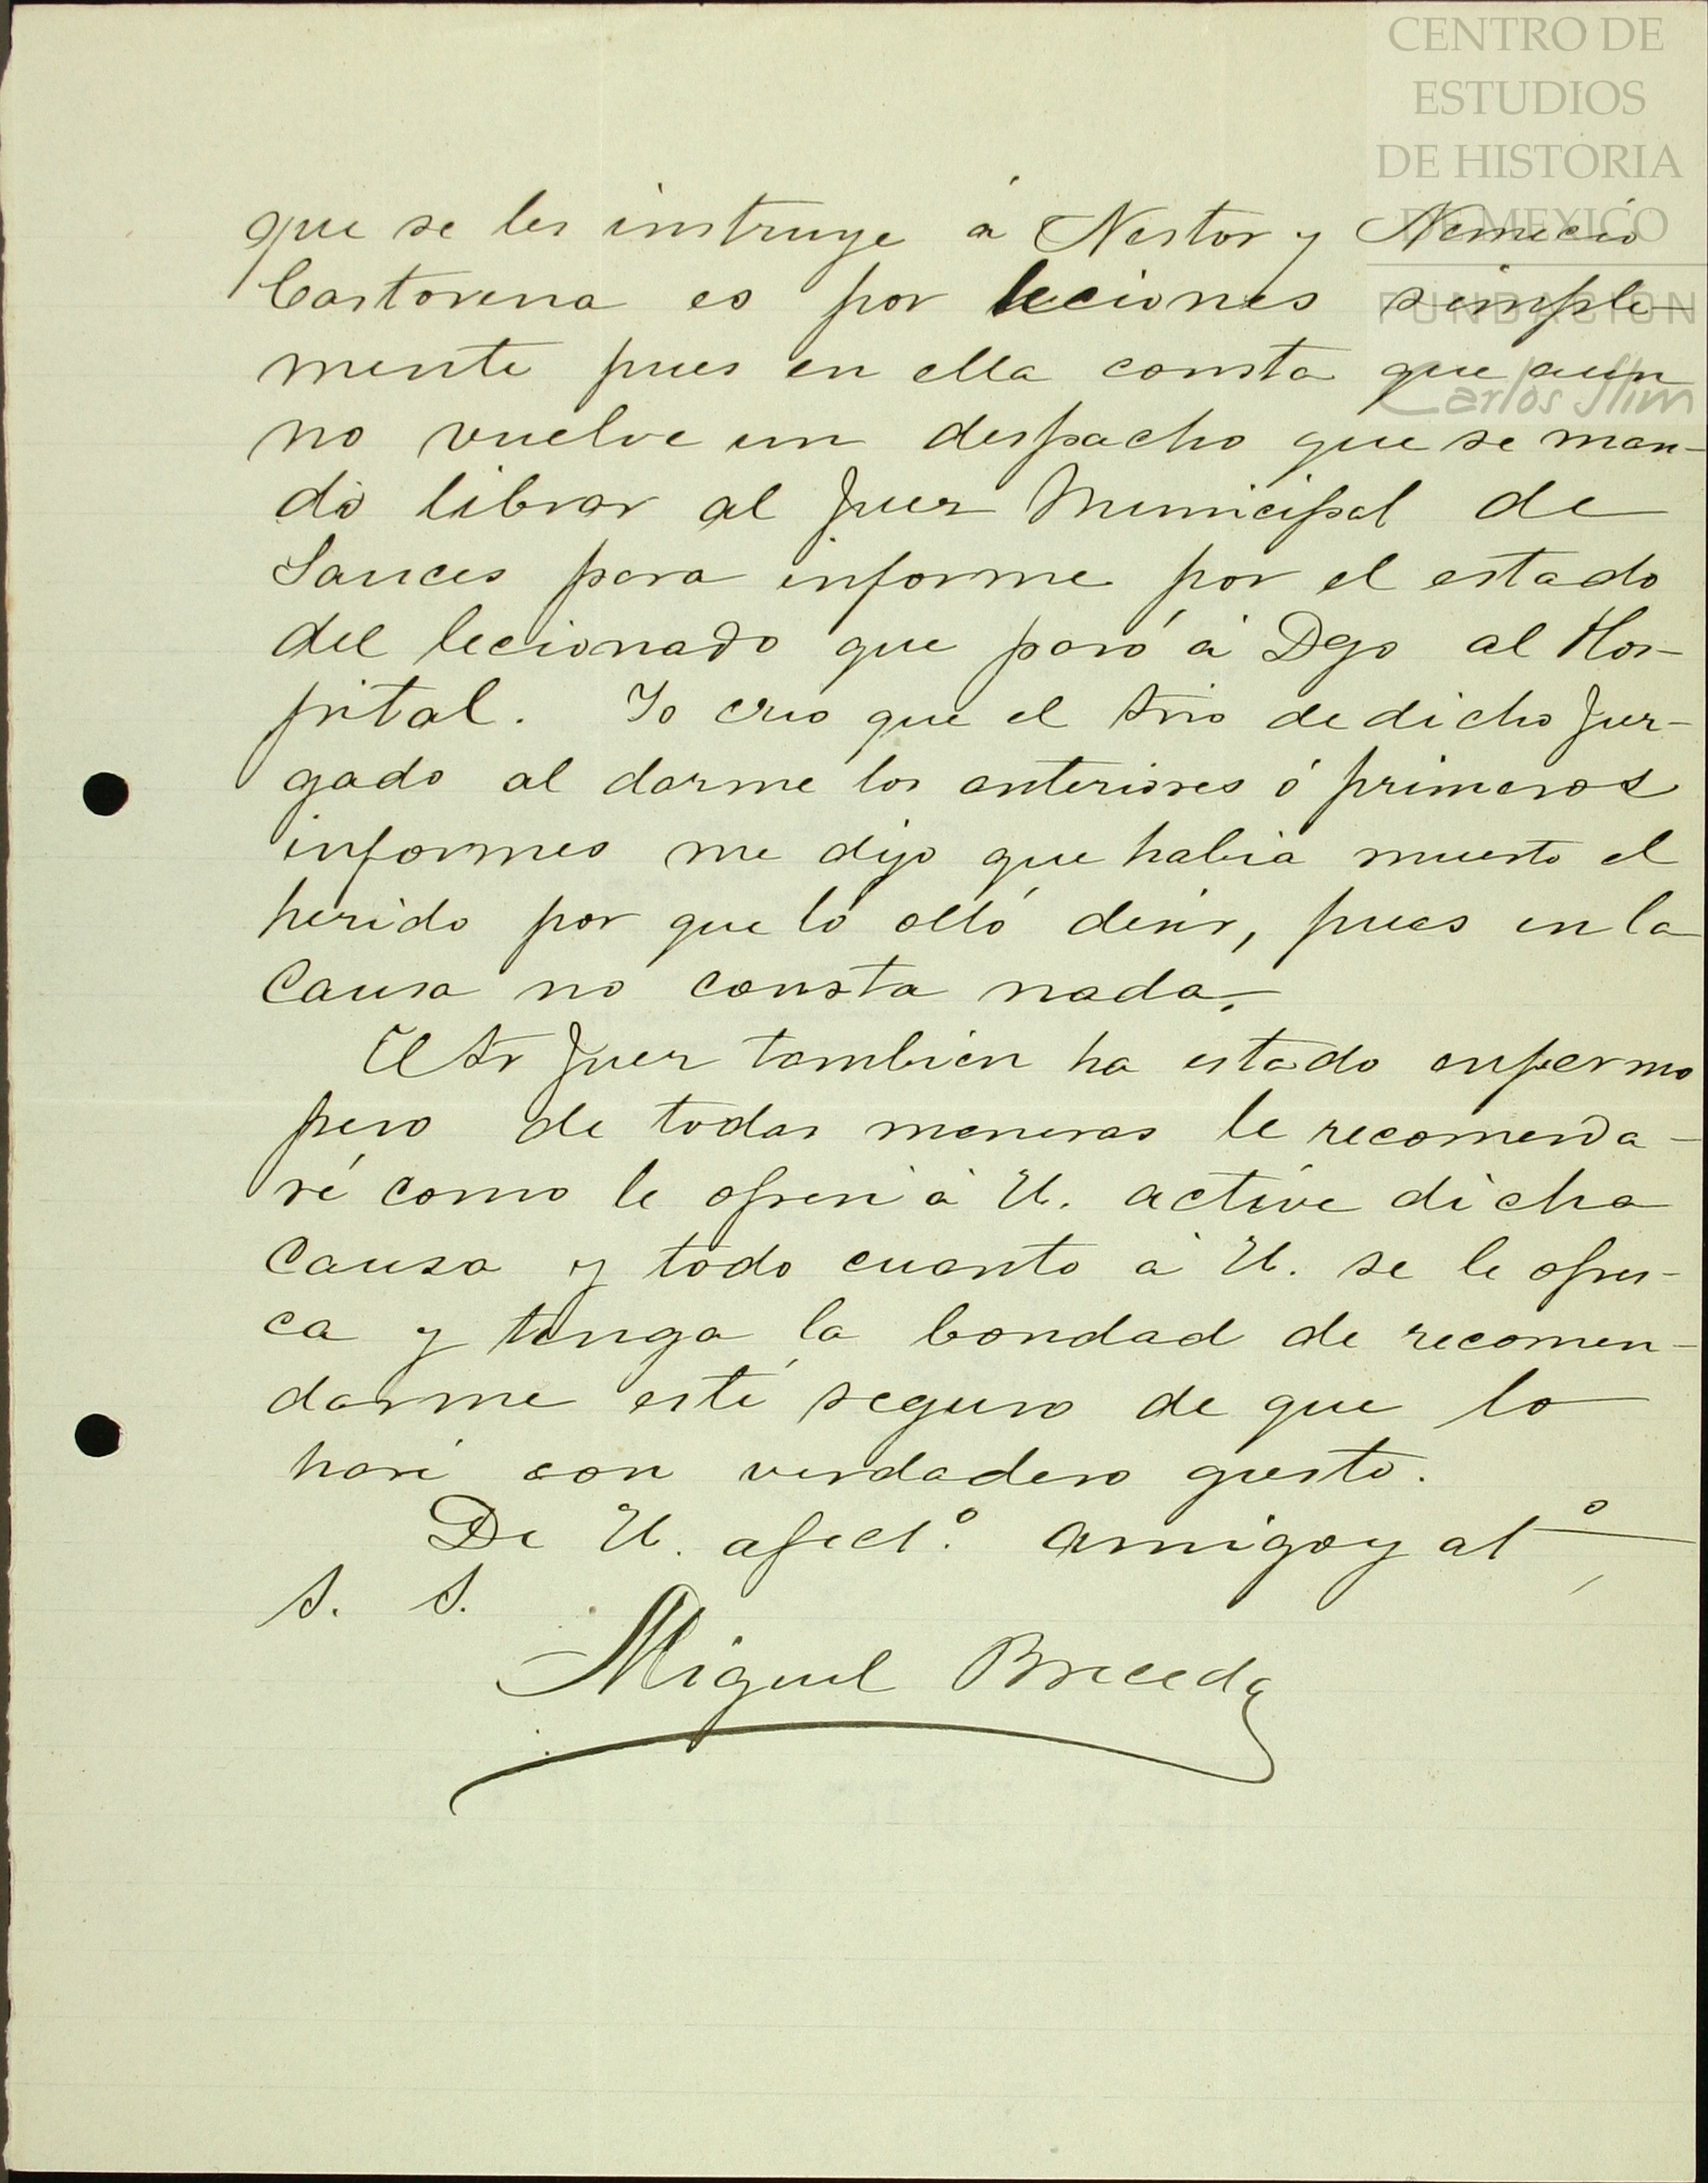 CENTRO DE
ESTUDIOS
DE HISTORIA
DE MEXICO
FUNDACION
Carlos Slim
que se les instruye á Nestor y Nemecio
Castorena es por leciones simple-
mente pues en ella consta que aun
no vuelve un despacho que se man-
dó librar al Juez Municipal de
Sauces para informe por el estado
del lecionado que pasó á Dgo al Hos-
pital. Yo creo que el Srio de dicho Juz-
gado al darme los anteriores ó primeros
informes me dijo que habia muerto el
herido por que lo olló decir, pues en la
Causa no consta nada.
El Sr Juez tambien ha estado enfermo
pero de todas maneras le recomenda-
ré como le ofreci á U. active dicha
Causa y todo cuanto á U. se le ofres-
ca y tenga la bondad de recomen-
darme esté seguro de que lo
haré con verdadero gusto.
De U. afect.º amigo y atº
S. S.
Miguel Breceda